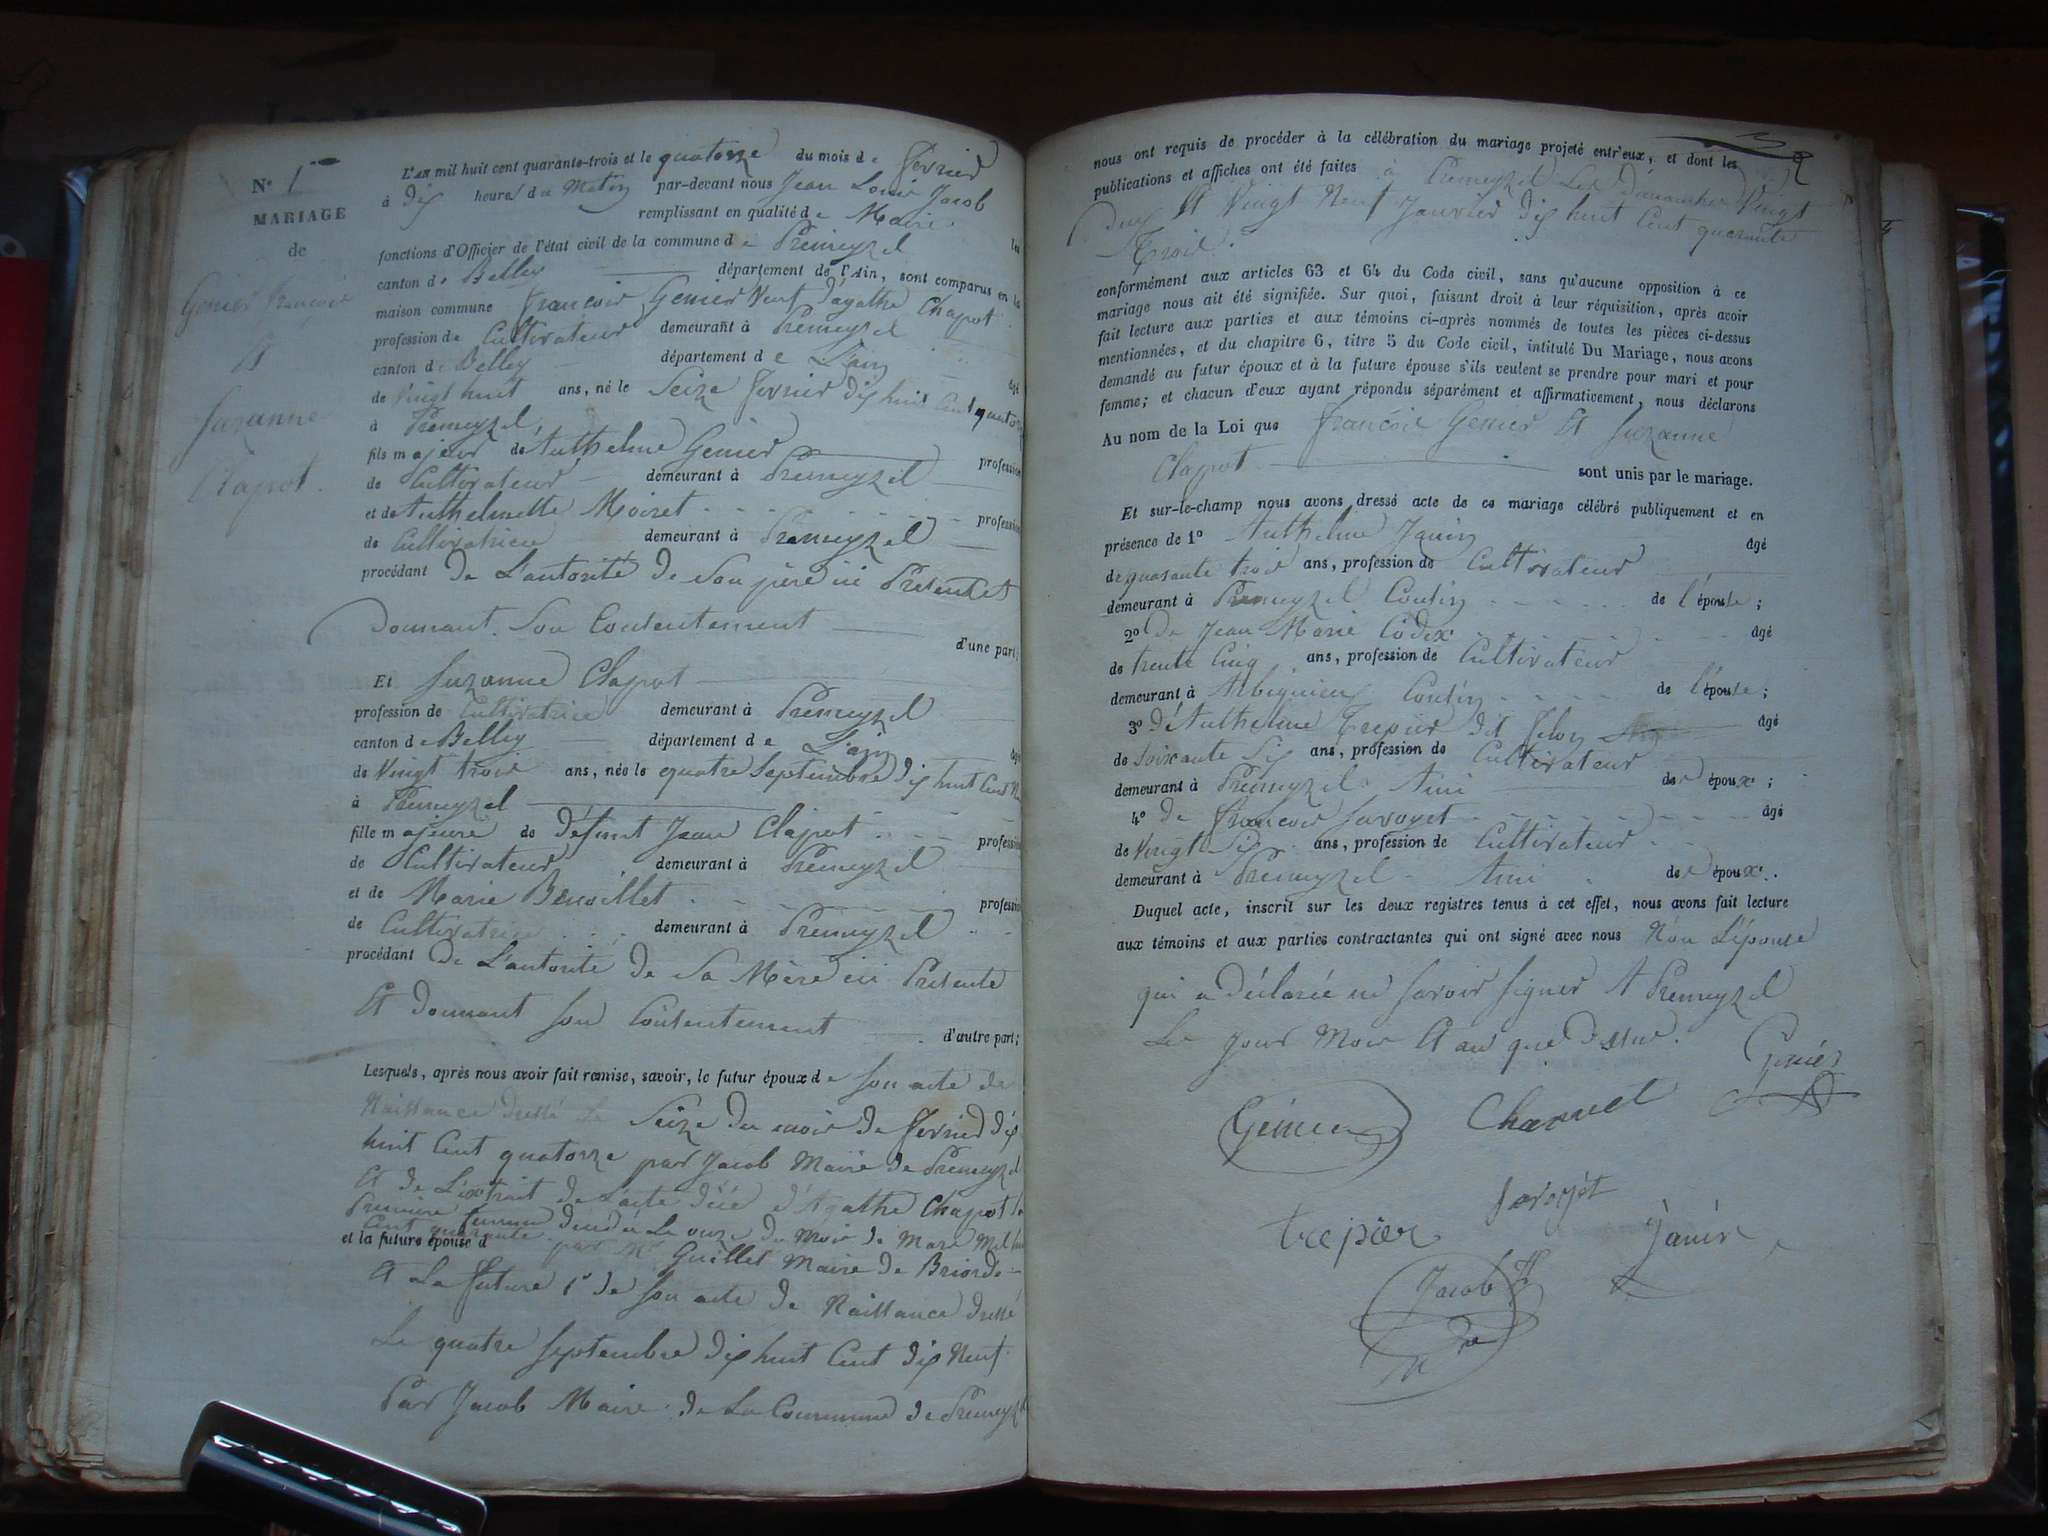 N° 1er
MARIAGE
de
Genier françois
Et
Suzanne
Chapot.
L'an mil huit cent quarante-trois et le quatorze du mois de fevrier
à dix heures du Matin par-devant nous Jean Louis Jacob
remplissant en qualité de Maire les
fonctions d'Officier de l'état civil de la commune de Premeyzel
canton de Belley département de l'Ain, sont comparus en la
maison commune françois Genier Veuf d'agathe Chapot
profession de Cultivateur demeurant à Premeyzel
canton de Belley département de L'ain âgé
de Vingt huit ans, né le Seize fevrier dix huit Cent quatorze
à Premeyzel
fils majeur de Anthelme Genier profession
de Cultivateur demeurant à Premeyzel
et de Anthelmette Moiret profession
de Cultivatrice demeurant à Premeyzel
procédant de L'autorité de Son père ici Present et
Donnant Son Consentement
d'une part;
Et Suzanne Chapot
profession de Cultivatrice demeurant à Premeyzel
canton de Belley département de L'ain âgée
de Vingt trois ans, née le quatre Septembre dix huit Cent
à Premeyzel
fille majeure de défunt Jean Chapot profession
de Cultivateur demeurant à Premeyzel
et de Marie Benoillet profession
de Cultivatrice demeurant à Premeyzel
procédant de L'autorité de Sa Mère ici Presente
Et donnant Son Consentement
d'autre part;
Lesquels, après nous avoir fait remise, savoir, le futur époux de son acte de
Naissance dressé Le Seize du mois de fevrier dix
huit Cent quatorze par Jacob Maire de Premeyzel
Et de L'extrait de L'acte d'Agathe Chapot Sa
Premiere femme Le onze du Mois de Mars Mil huit
Cent quarante par Mr Guillet Maire de Briorde
et la future épouse d
Et La future 1° de Son acte de Naissance dressé
Le quatre Septembre dix huit Cent dix Neuf
Par Jacob Maire de La Commune de Premeyzel
nous ont requis de procéder à la célébration du mariage projeté entr'eux, et dont les
publications et affiches ont été faites à Premeyzel Les Dimanches Vingt
Deux Et Vingt Neuf Janvier dix huit Cent quarante
Trois.
conformément aux articles 63 et 64 du Code civil, sans qu'aucune opposition à ce
mariage nous ait été signifiée. Sur quoi, faisant droit à leur réquisition, après avoir
fait lecture aux parties et aux témoins ci-après nommés de toutes les pièces ci-dessus
mentionnées, et du chapitre 6, titre 5 du Code civil, intitulé Du Mariage, nous avons
demandé au futur époux et à la future épouse s'ils veulent se prendre pour mari et pour
femme; et chacun d'eux ayant répondu séparément et affirmativement, nous déclarons
Au nom de la Loi que françois Genier Et Suzanne
Chapot sont unis par le mariage.
Et sur-le-champ nous avons dressé acte de ce mariage célébré publiquement et en
présence de 1° Anthelme Janin âgé
de quarante trois ans, profession de Cultivateur
demeurant à Premeyzel Cousin de l'épouse;
2° De Jean Marie Codex âgé
de trente Cinq ans, profession de Cultivateur
demeurant à Arbignieu Cousin de l'épouse;
3° d'Anthelme Trepier dit âgé
de Soixante Six ans, profession de Cultivateur
demeurant à Premeyzel Ami de époux;
4° de françois Savoyet âgé
de Vingt Six ans, profession de Cultivateur
demeurant à Premeyzel Ami de époux.
Duquel acte, inscrit sur les deux registres tenus à cet effet, nous avons fait lecture
aux témoins et aux parties contractantes qui ont signé avec nous Non L'épouse
qui a déclarée ne Savoir Signer A Premeyzel
Les Jour Mois Et an que Dessus.
Genier
Genier
Savoyet
trepier
Janin
Jacob